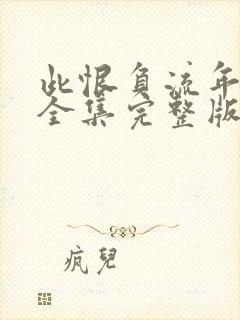 此恨负流年
全集完整版
疯兒